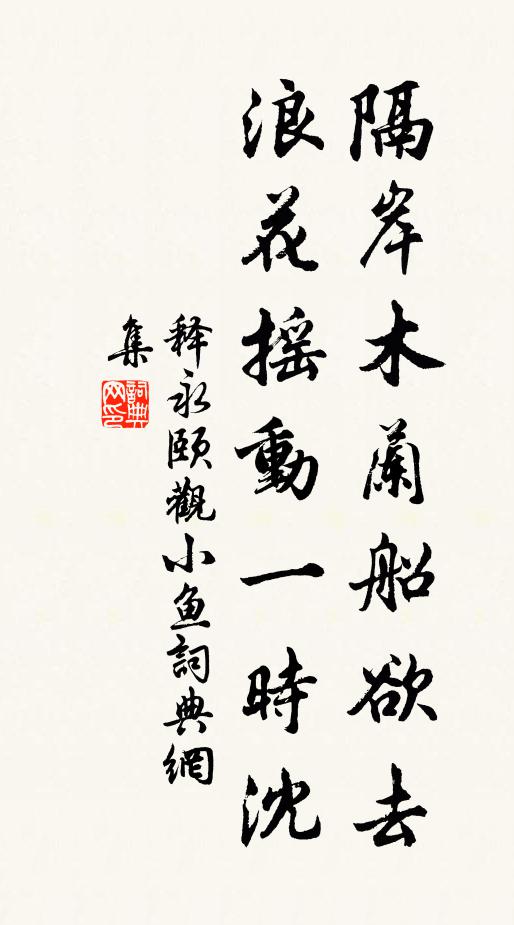 隔岸木蘭船欲去
浪花搖動一時沈
释永颐觀小鱼詞典網
集
詞典
网印